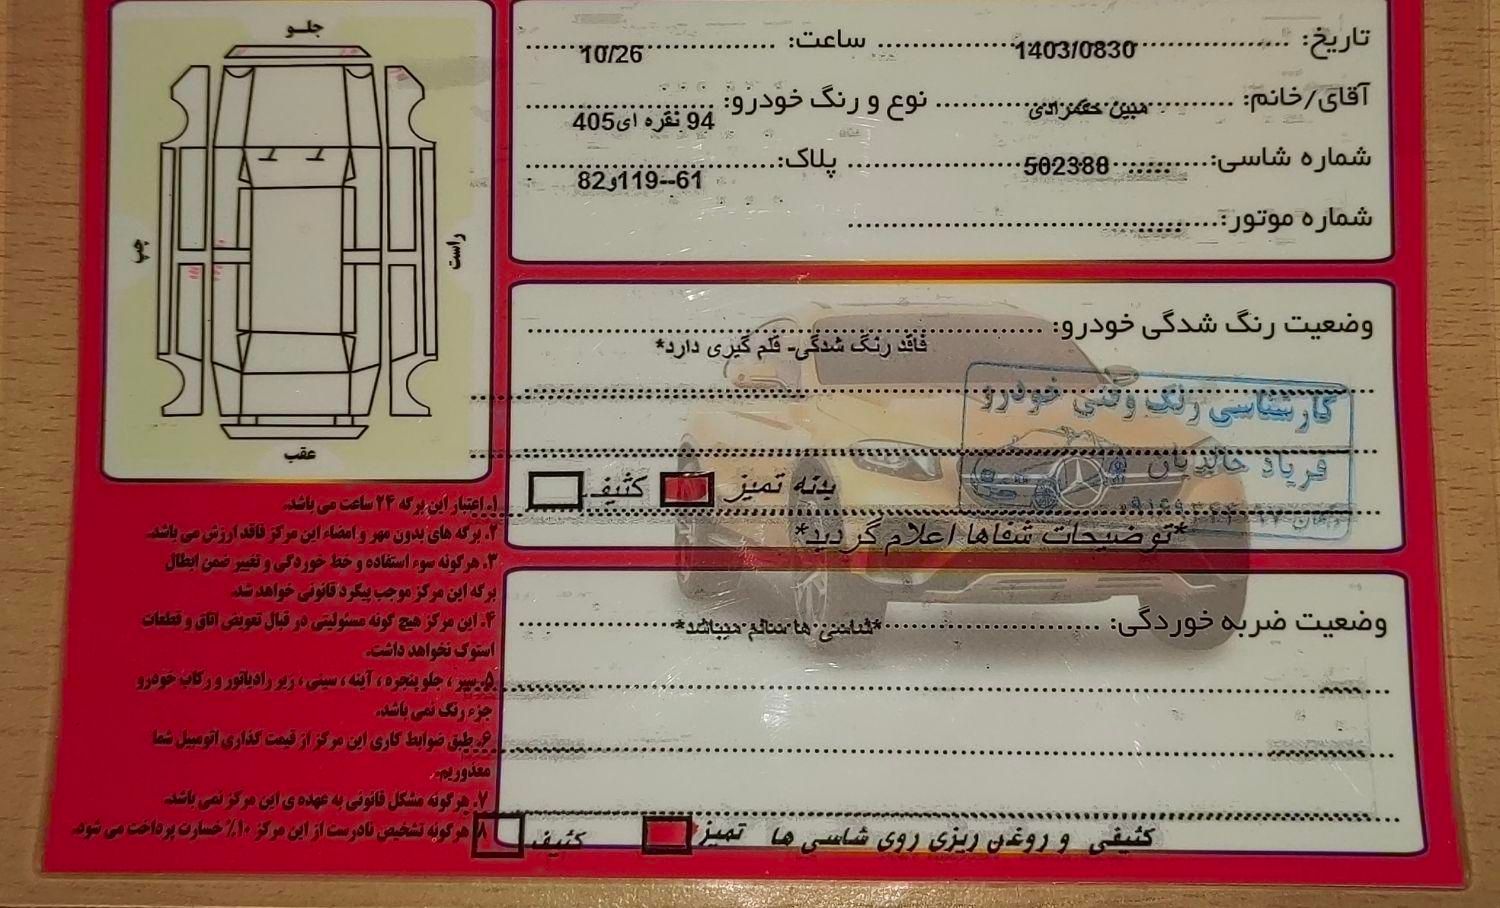 جلـو
چپ
راست
عقب
تاریخ: 1403/0830 ساعت: 10/26
آقای/خانم: مبین نوع و رنگ خودرو: 94 نقره ای405
شماره شاسی: 502388 پلاک: 61--119و82
شماره موتور:
وضعیت رنگ شدگی خودرو:
فاقد رنگ شدگی- قلم گیری دارد*
کارشناسی رنگ وفنی خودرو
فریاد خالدیان
بدنه تمیز کثیف
*توضیحات شفاها اعلام گردید*
وضعیت ضربه خوردگی: *شاسی ها سالم میباشد*
کثیفی و روغن ریزی روی شاسی ها تمیز کثیف
۱. اعتبار این برگه ۲۴ ساعت می باشد.
۲. برگه های بدون مهر و امضاء این مرکز فاقد ارزش می باشد.
۳. هرگونه سوء استفاده و خط خوردگی و تغییر ضمن ابطال
برگه این مرکز موجب پیگرد قانونی خواهد شد.
۴. این مرکز هیچ گونه مسئولیتی در قبال تعویض اتاق و قطعات
استوک نخواهد داشت.
۵. سپر ، جلو پنجره ، آینه ، سینی ، زیر رادیاتور و رکاب خودرو
جزء رنگ نمی باشد.
۶. طبق ضوابط کاری این مرکز از قیمت گذاری اتومبیل شما
معذوریم.
۷. هرگونه مشکل قانونی به عهده ی این مرکز نمی باشد.
۸. هرگونه تشخیص نادرست از این مرکز ۱۰٪ خسارت پرداخت می شود.